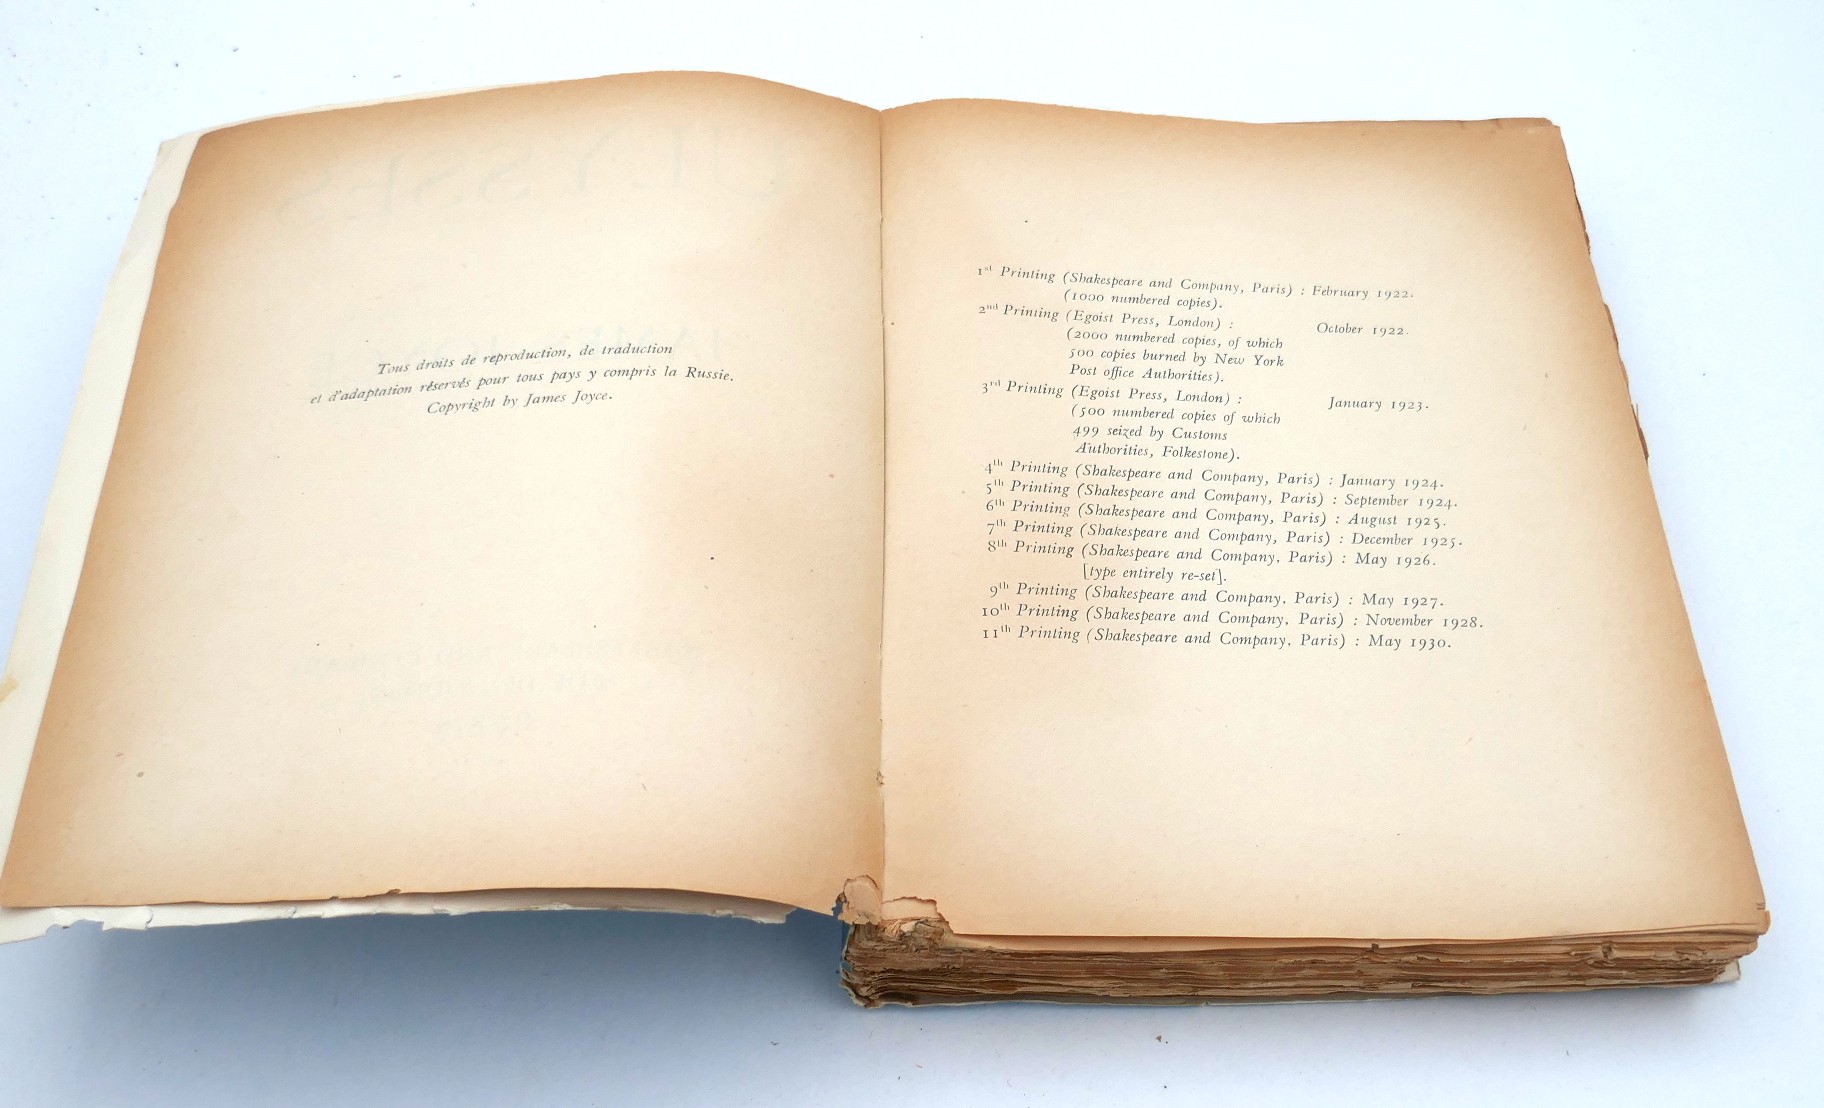 Tous droits de reproduction, de traduction
et d'adaptation réservés pour tous pays y compris la Russie.
Copyright by James Joyce.
1st Printing (Shakespeare and Company, Paris) : February 1922.
(1000 numbered copies).
2nd Printing (Egoist Press, London) : October 1922.
(2000 numbered copies, of which
500 copies burned by New York
Post office Authorities).
3rd Printing (Egoist Press, London) : January 1923.
(500 numbered copies of which
499 seized by Customs
Authorities, Folkestone).
4th Printing (Shakespeare and Company, Paris) : January 1924.
5th Printing (Shakespeare and Company, Paris) : September 1924.
6th Printing (Shakespeare and Company, Paris) : August 1925.
7th Printing (Shakespeare and Company, Paris) : December 1925.
8th Printing (Shakespeare and Company, Paris) : May 1926.
[type entirely re-set].
9th Printing (Shakespeare and Company, Paris) : May 1927.
10th Printing (Shakespeare and Company, Paris) : November 1928.
11th Printing (Shakespeare and Company, Paris) : May 1930.